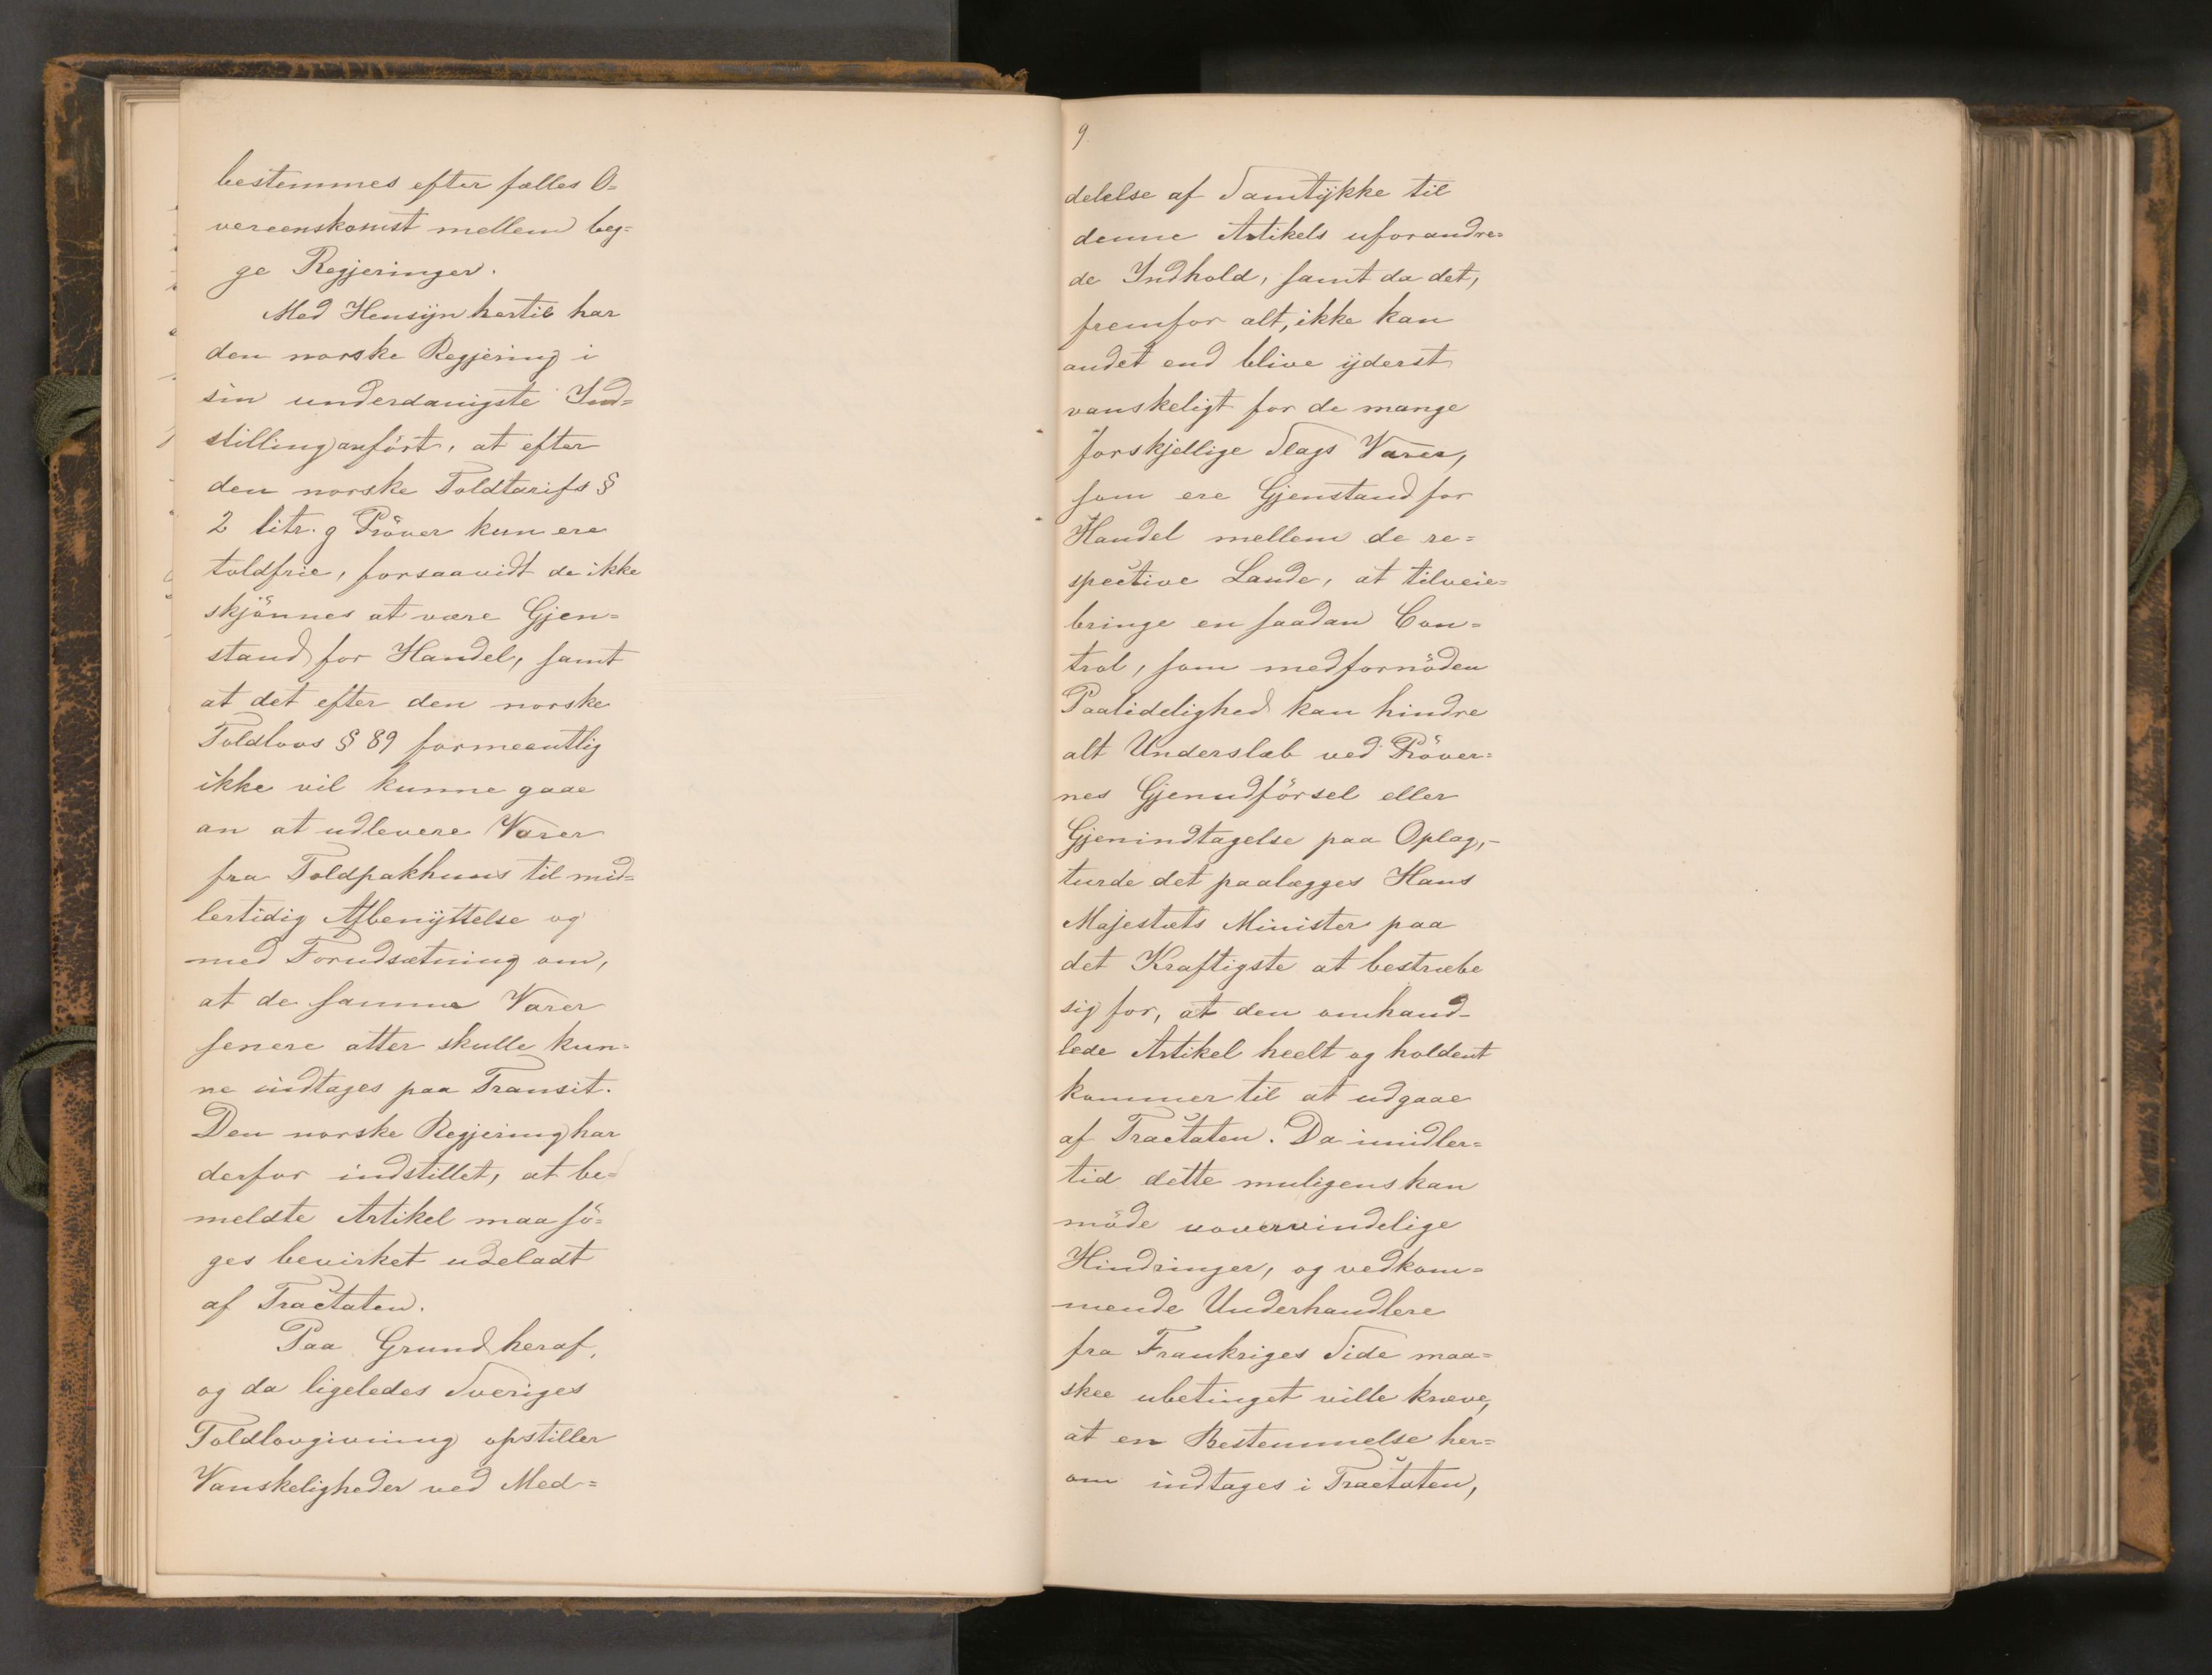 bestemmes efter fælles O=
vereenskomst mellem beg=
ge Regjeringer.
Med Hensyn hertil har
den norske Regjering i
sin underdanigste Ind=
stilling anført, at efter
den norske Toldtarifs §
2 litr. g Prøver kun ere
toldfrie, forsaavidt de ikke
skjønnes at være Gjen=
stand for Handel, samt
at det efter den norske
Toldlovs § 89 formeentlig
ikke vil kunne gaae
an at udlevere Varer
fra Toldpakhuus til mid=
lertidig Afbenyttelse og
med Forudsætning om,
at de samme Varer
senere atter skulle kun=
ne indtages paa Transit.
Den norske Regjering har
derfor indstillet, at be=
meldte Artikel maa sö=
ges bevirket udeladt
af Tractaten.
Paa Grund heraf,
og da ligeledes Sveriges
Toldlovgivning opstiller
Vanskeligheder ved Med=
9
delelse af Samtykke til
denne Artikels uforandre=
de Indhold, samt da det,
fremfor alt, ikke kan
andet end blive yderst
vanskeligt for de mange
forskjellige Slags Varer,
som ere Gjenstand for
Handel mellem de re=
spective Lande, at tilveie=
bringe en saadan Con=
trol, som med fornöden
Paalidelighed kan hindre
alt Underslæb ved Pröver=
nes Gjenudförsel eller
Gjenindtagelse paa Oplag,-
turde det paalægges Hans
Majestæts Minister paa
det Kraftigste at bestræbe
sig for, at den omhand-
lede Artikel heelt og holdent
kommer til at udgaae
af Tractaten. Da imidler=
tid dette muligens kan
möde uovervindelige
Hindringer, og vedkom=
mende Underhandlere
fra Frankriges Side maa=
skee ubetinget ville kræve,
at en Bestemmelse her=
om indtages i Tractaten,